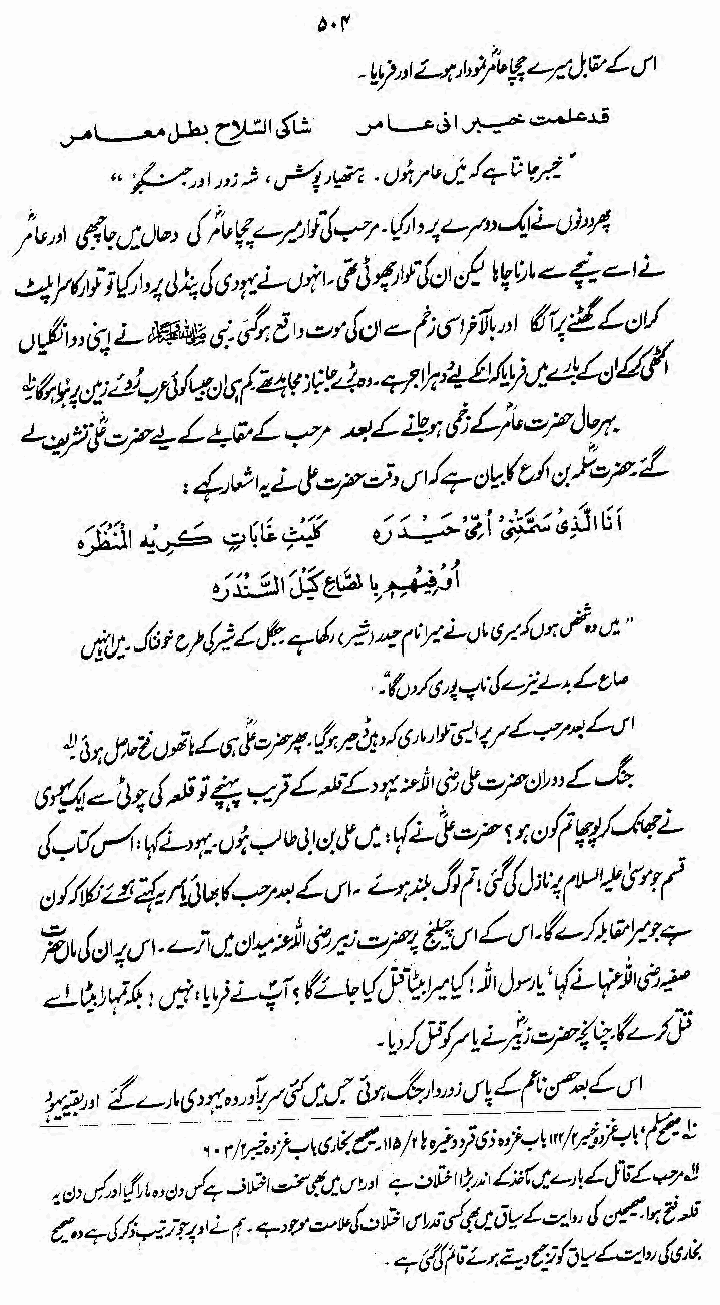 ۵۰۴
اس کے مقابل میرے چچا عامرؓ نمودار ہوئے اور فرمایا۔
قد علمت خیبر انی عامر شاکی السلاح بطل مغامر
”خیبر جانتا ہے کہ میں عامر ہُوں۔ ہتھیار پوش، شہ زور اور جنگجو“
پھر دونوں نے ایک دوسرے پر وار کیا۔ مرحب کی تلوار میرے چچا عامرؓ کی ڈھال میں جا چبھی اور عامرؓ
نے اسے نیچے سے مارنا چاہا لیکن ان کی تلوار چھوٹی تھی۔ انہوں نے یہودی کی پنڈلی پر وار کیا تو تلوار کا سرا پلٹ
کر ان کے گھٹنے پر آ لگا اور بالآخر اسی زخم سے ان کی موت واقع ہو گئی۔ نبی ﷺ نے اپنی دو انگلیاں
اکٹھی کر کے ان کے بارے میں فرمایا کہ انکے لیے دُہرا اجر ہے۔ وہ بڑے جانباز مجاہد تھے کم ہی ان جیسا کوئی عرب رُوئے زمین پر ہوا ہو گا ۱۰؎
بہر حال حضرت عامرؓ کے زخمی ہو جانے کے بعد مرحب کے مقابلے کے لیے حضرت علیؓ تشریف لے
گئے۔ حضرت سلمہؓ بن اکوع کا بیان ہے کہ اس وقت حضرت علی نے یہ اشعار کہے :
اَنَا الَّذِیْ سَمَّتْنِیْ اُمِّیْ حَیْدَرَہ کَلَیْثِ غَابَاتٍ کَرِیْهِ الْمَنْظَرَہ
اُوْفِیْهِمْ بِالصَّاعِ کَیْلَ السَّنْدَرَہ
”میں وہ شخص ہوں کہ میری ماں نے میرا نام حیدر (شیر) رکھا ہے جنگل کے شیر کی طرح خوفناک۔ میں انہیں
صاع کے بدلے نیزے کی ناپ پوری کر دوں گا۔“
اس کے بعد مرحب کے سر پر ایسی تلوار ماری کہ وہیں ڈھیر ہو گیا۔ پھر حضرت علیؓ ہی کے ہاتھوں فتح حاصل ہوئی ۱۱؎
جنگ کے دوران حضرت علی رضی اللہ عنہ یہود کے قلعہ کے قریب پہنچے تو قلعہ کی چوٹی سے ایک یہودی
نے جھانک کر پوچھا تم کون ہو؟ حضرت علیؓ نے کہا: میں علی بن ابی طالب ہُوں۔ یہود نے کہا: اس کتاب کی
قسم جو موسیٰ علیہ السلام پر نازل کی گئی! تم لوگ بلند ہوئے۔ اس کے بعد مرحب کا بھائی یاسر یہ کہتے ہوئے نکلا کہ کون
ہے جو میرا مقابلہ کرے گا۔ اس کے اس چیلنج پر حضرت زبیر رضی اللہ عنہ میدان میں اترے۔ اس پر ان کی ماں حضرت
صفیہ رضی اللہ عنہا نے کہا ’یا رسول اللہ! کیا میرا بیٹا قتل کیا جائے گا؟ آپؐ نے فرمایا: نہیں! بلکہ تمہارا بیٹا اسے
قتل کرے گا۔ چنانچہ حضرت زبیرؓ نے یاسر کو قتل کر دیا۔
اس کے بعد حصن ناعم کے پاس زوردار جنگ ہوئی جس میں کئی سر برآوردہ یہودی مارے گئے اور بقیہ یہود
۱۰؎ صحیح مسلم، باب غزوہ خیبر ۲/۱۲۲ باب غزوہ ذی قرد وغیرہ ہا ۲/۱۱۵۔ صحیح بخاری باب غزوہ خیبر ۲/۶۰۳
۱۱؎ مرحب کے قاتل کے بارے میں مآخذ کے اندر بڑا اختلاف ہے اور اس میں بھی سخت اختلاف ہے کس دن وہ مارا گیا اور کس دن یہ
قلعہ فتح ہوا۔ صحیحین کی روایت کے سیاق میں بھی کسی قدر اس اختلاف کی علامت موجود ہے۔ ہم نے اوپر جو ترتیب ذکر کی ہے وہ صحیح
بخاری کی روایت کے سیاق کو ترجیح دیتے ہوئے قائم کی گئی ہے۔